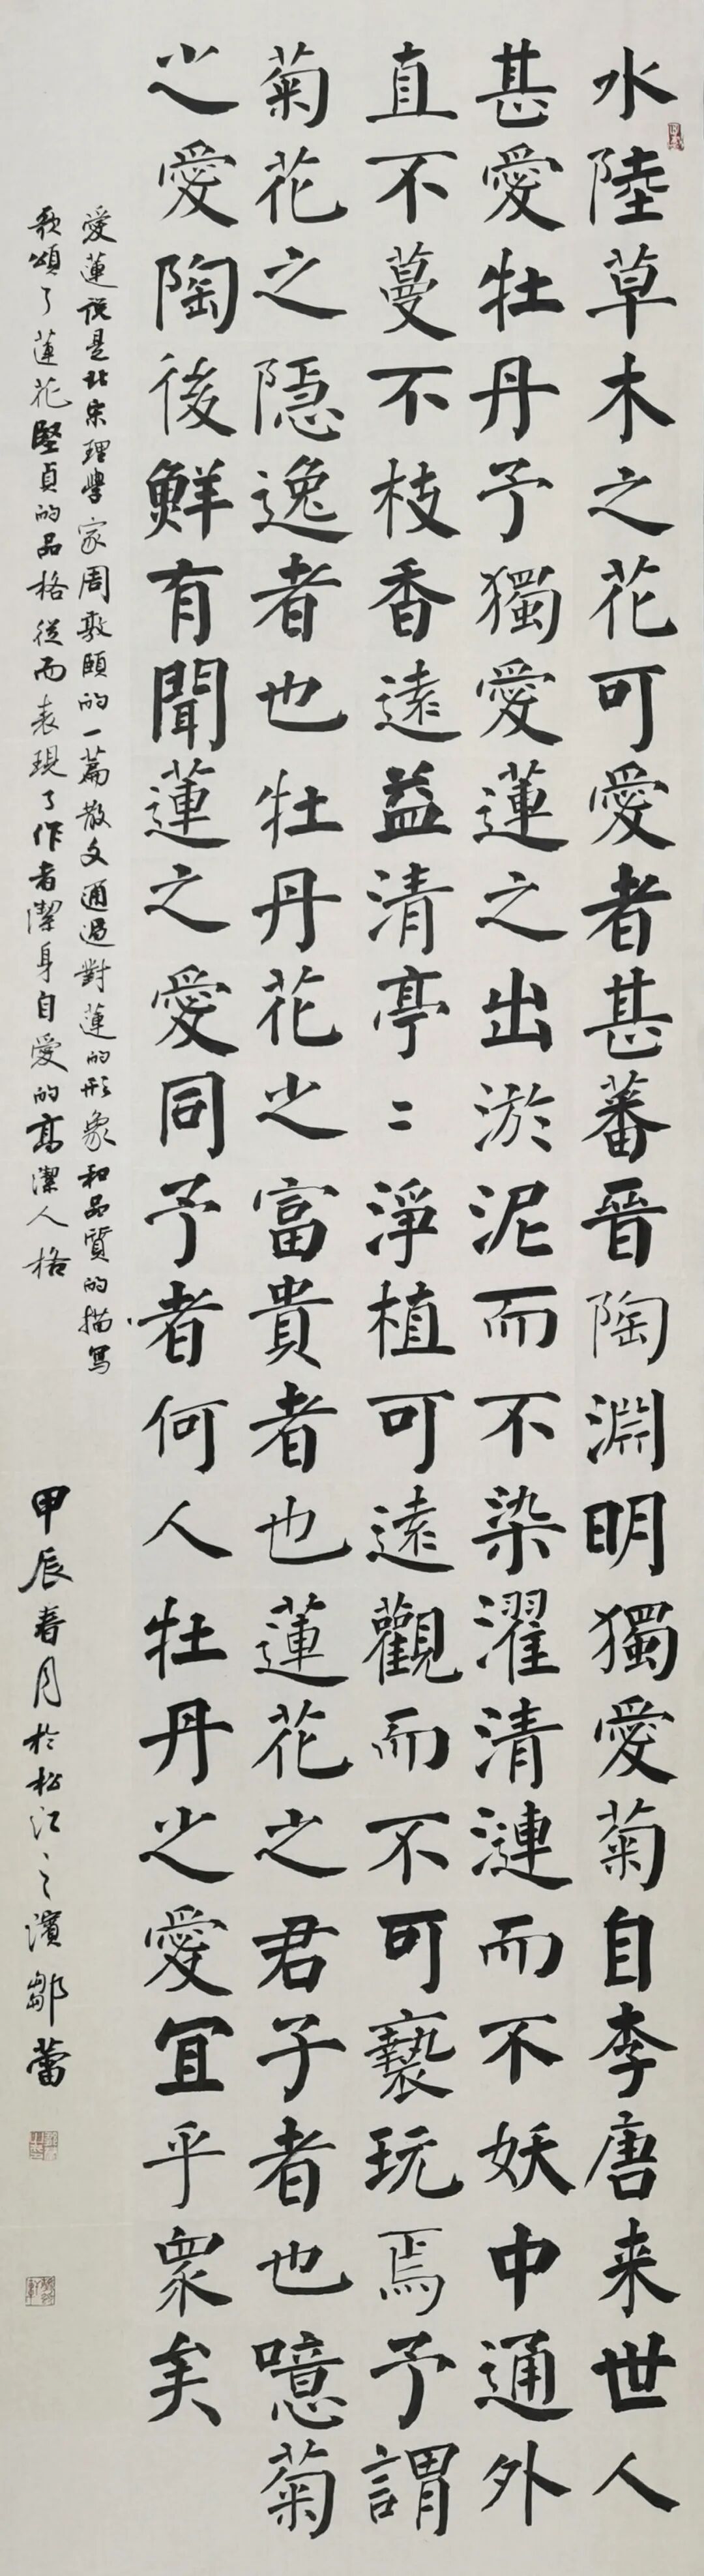 水陸草木之花可愛者甚蕃晉陶淵明獨愛菊自李唐来世人
甚愛牡丹予獨愛蓮之出淤泥而不染濯清漣而不妖中通外
直不蔓不枝香遠益清亭〻淨植可遠觀而不可褻玩焉予謂
菊花之隱逸者也牡丹花之富貴者也蓮花之君子者也噫菊
之愛陶後鮮有聞蓮之愛同予者何人牡丹之愛宜乎眾矣
愛蓮説是北宋理學家周敦頤的一篇散文通過對蓮的形象和品質的描寫
歌頌了蓮花堅貞的品格從而表現了作者潔身自愛的高潔人格
甲辰春月於松江之濱鄒蕾